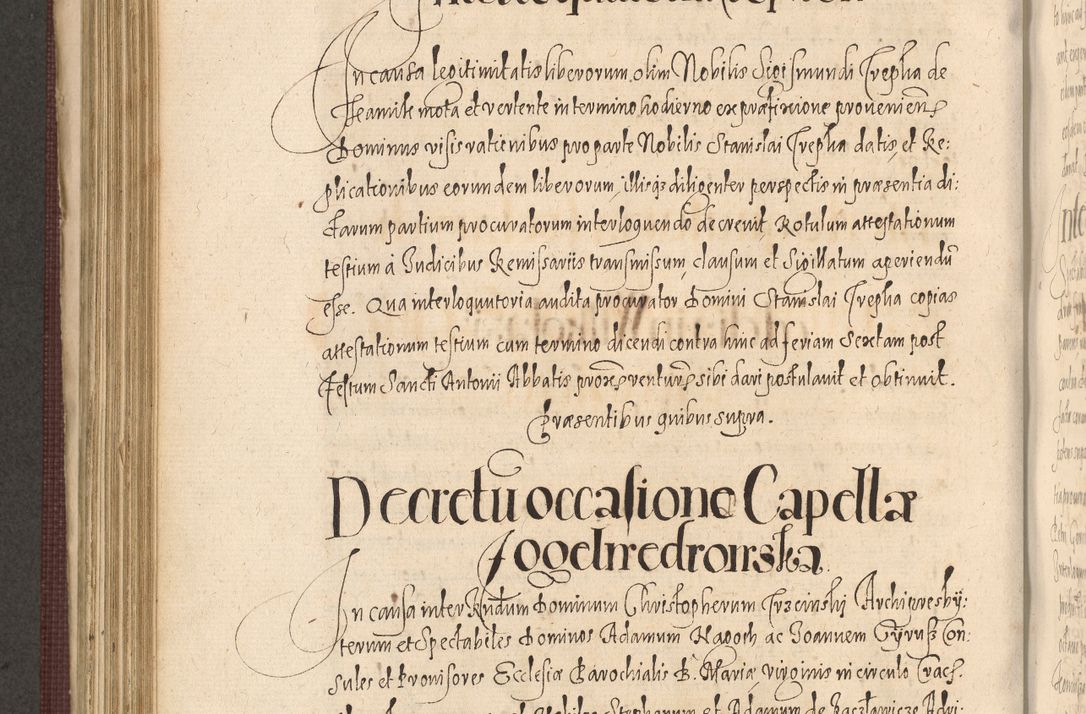 In causa legitimitatis liberorum olim Nobilis Sigismundi Trepka de
mota et vertente in termino hodierno ex præfixione provenien
Dominus visis rationibus pro parte Nobilis Stanislai Trepka datis, et Re:
plicationibus eorundem liberorum, illisq3 diligenter perspectis in præsentia di:
ctarum partium procuratorum interloquendo decrevit, Rotulum attestationum
testium à Iudicibus Remissariis transmissum, clausum et Sigillatum aperiendū
esse. Qua interloquutoria audita procurator Domini Stanislai Trepka copias
attestationum testium cum termino dicendi contra hinc ad feriam Sextam post
Festum Sancti Antonii Abbatis prox ventur sibi dari postulavit et obtinuit.
Præsentibus quibus supra.
Decretū occasione Capellæ
In causa inter Rndum Dominum Christopherum Trzcinski Archipresby:
terum et Spectabiles Dominos Adamum Nagoth ac Ioannem Cyrus Con:
sules et Provisores Ecclesiæ Parochialis B. Mariæ virginis in circulo Crac.
Nobiles Stephanum et Adamum de